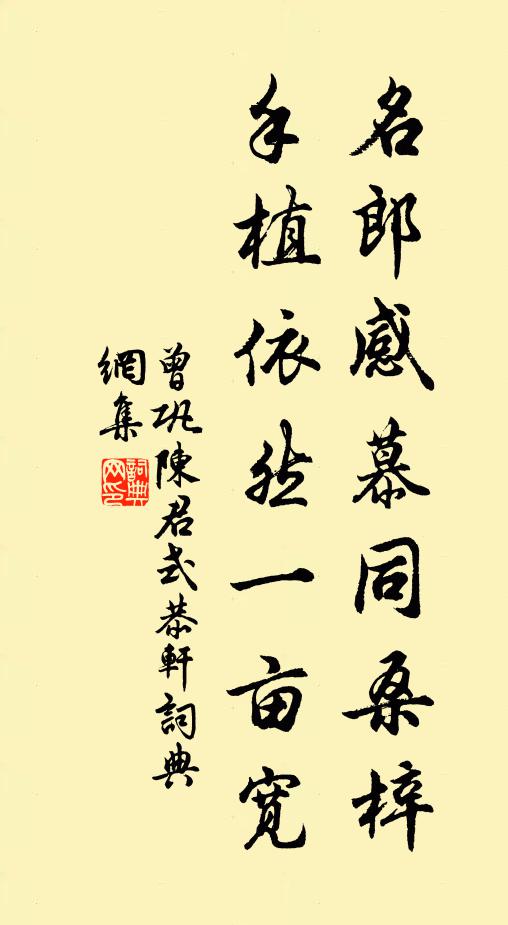 名郎感慕同桑梓
手植依然一亩寬
曾巩陳君式恭軒詞典
網集
詞典网印